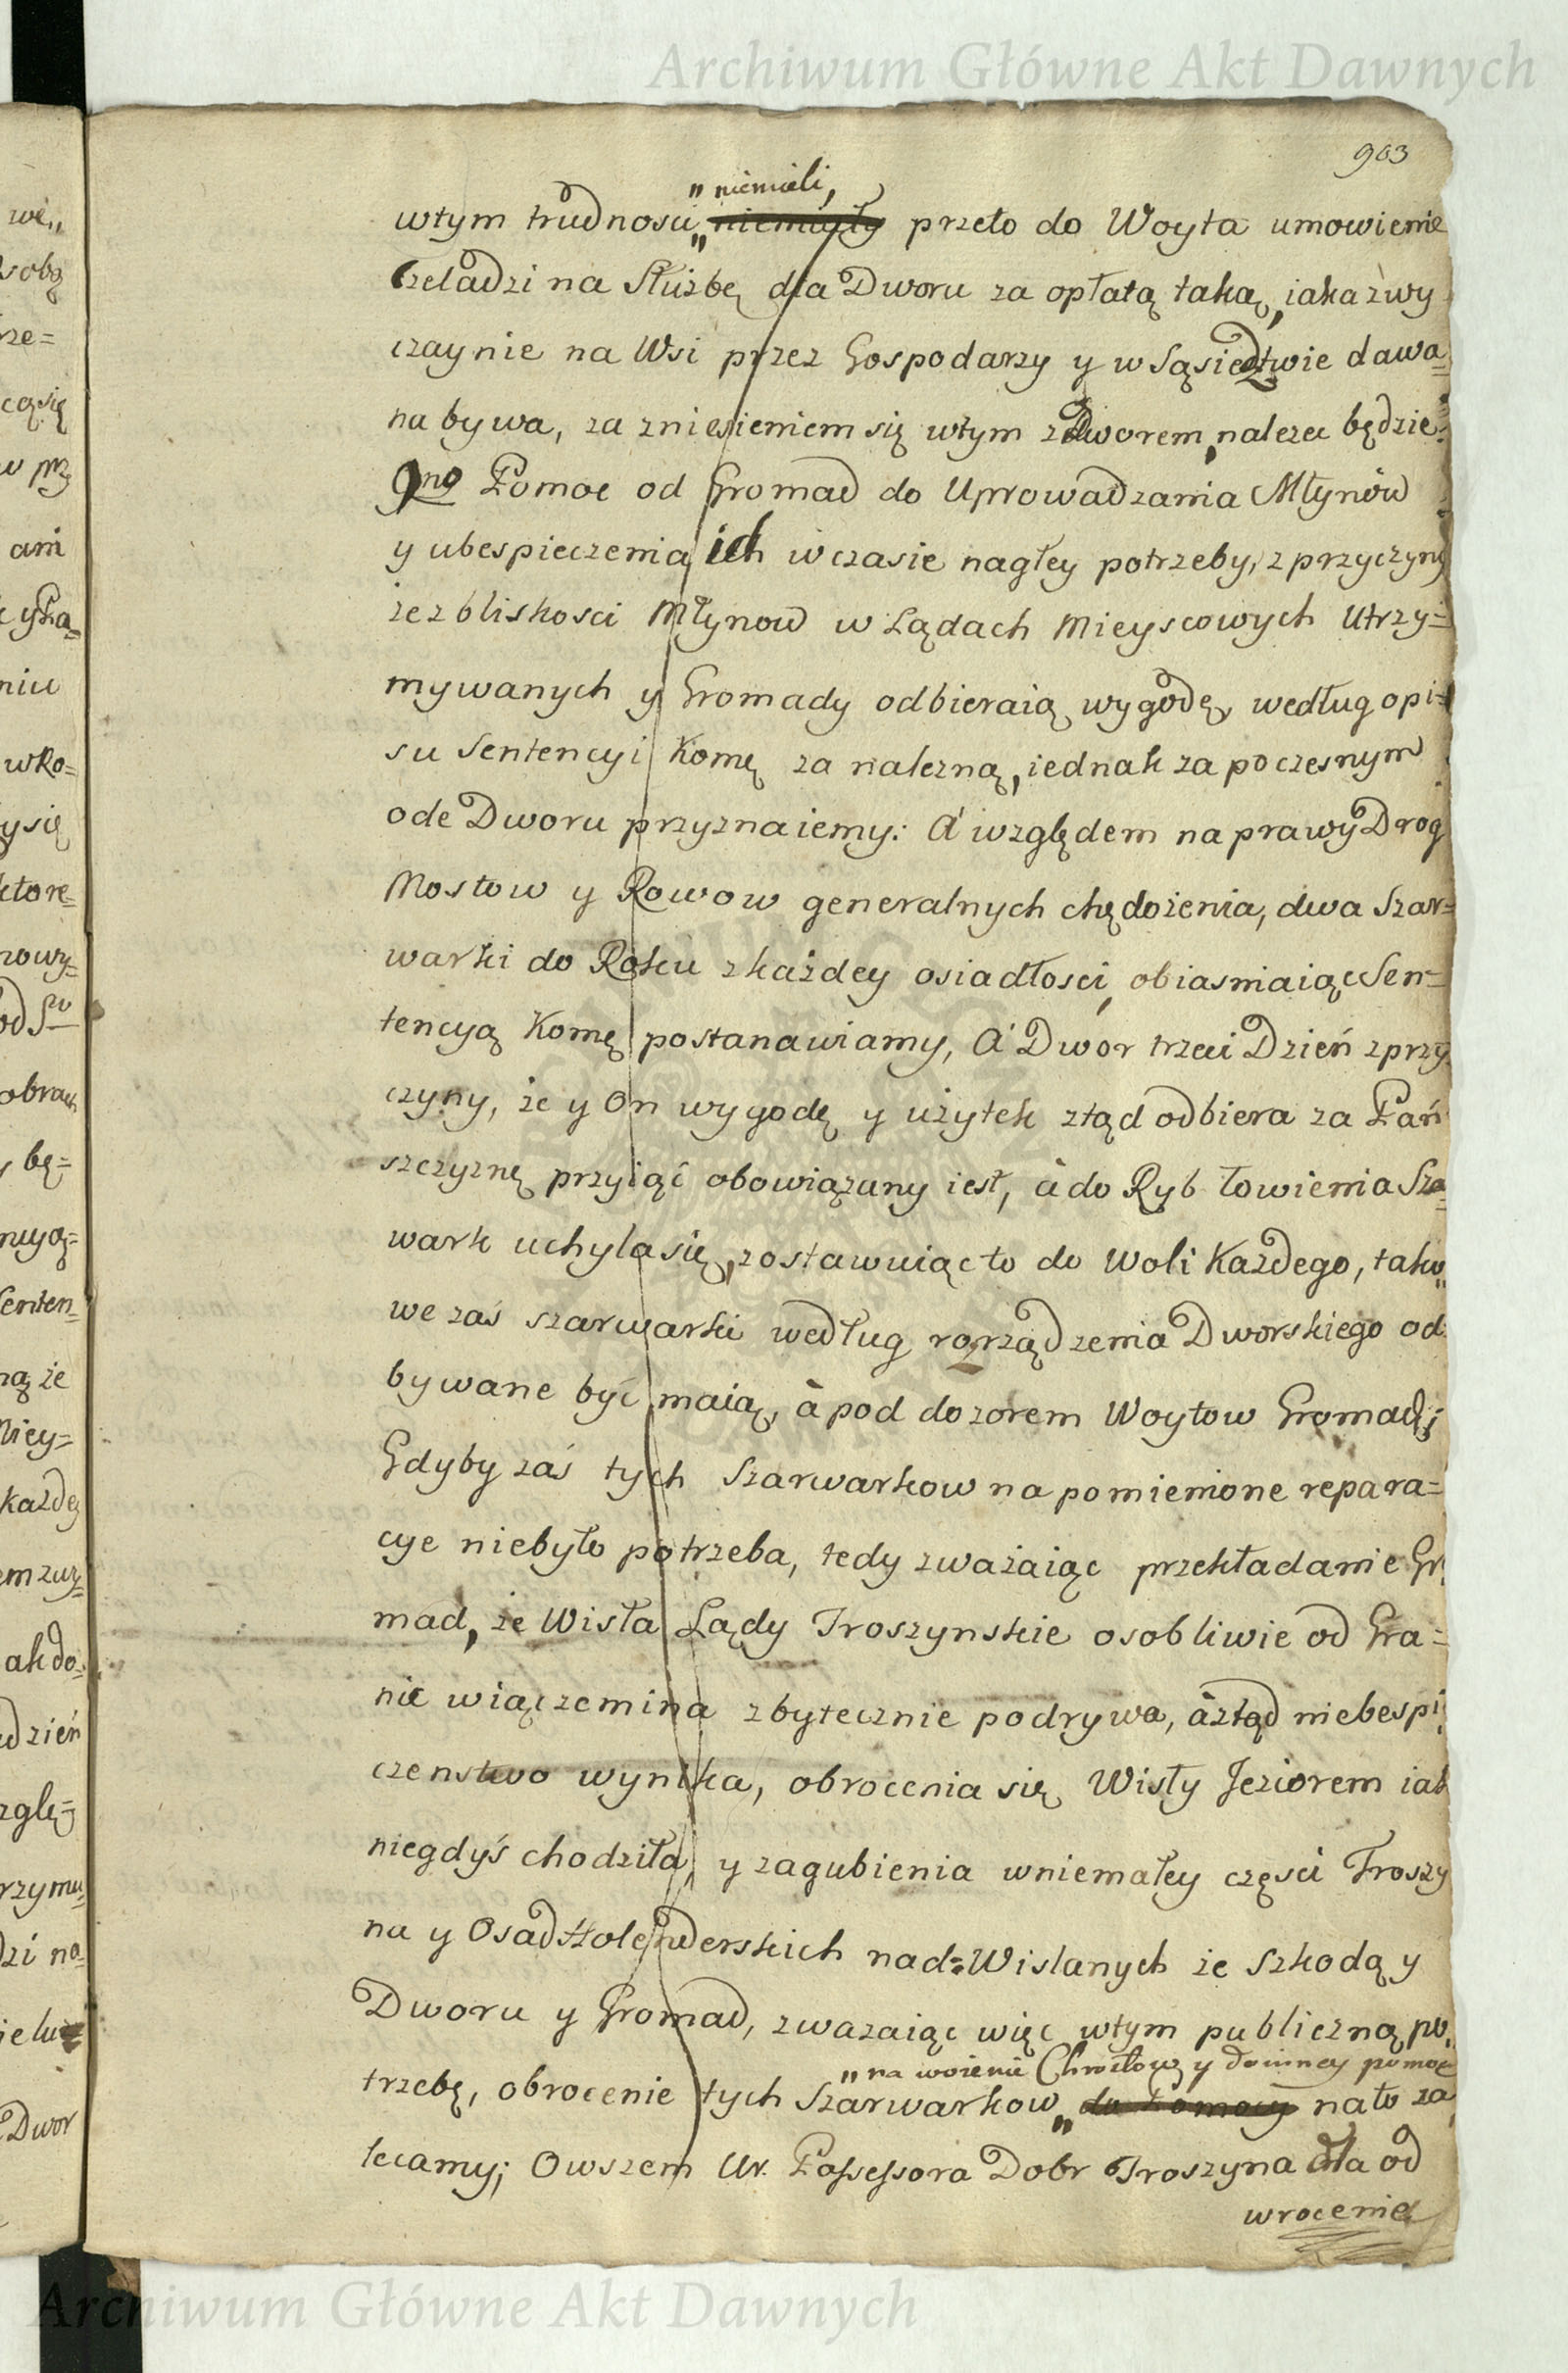 Archiwum Główne Akt Dawnych
903
„niemieli,
wtym trudnosci„ niemiały przeto do Woyta umowienie
Czeladzi na Służbę dla Dworu za opłatą taką, iaka zwy
czaynie na Wsi przez Gospodarzy y w Sąsiedztwie dawa=
na bywa, za zniesieniem się wtym z Dworem, nalezeć będzie.
9no Pomoc od Gromad do Uprowadzania Młynów
y ubespieczenia ich wczasie nagłey potrzeby, z przyczyny
że z bliskosci Młynow w Lądach Mieyscowych Utrzy=
mywanych y Gromady odbieraią wygodę, według opi=
su Sentencyi Komę za nalezną, iednak za poczesnym
ode Dworu przyznaiemy: A względem naprawy Drog
Mostow y Rowow generalnych chędożenia, dwa Szar=
warki do Roku z każdey osiadłości, obiasniaiąc Sen=
tencyą Komę postanawiamy, A Dwor trzeci Dzień z przy
czyny, że y On wygodę y użytek ztąd odbiera za Pań
szczyznę przyiąć obowiązany iest, à do Ryb łowienia Sza=
wark uchyla się, zostawuiąc to do Woli Każdego, tako„
we zaś szarwarki według rozrządzenia Dworskiego od=
bywane być maią, à pod dozorem Woytow Gromad;
Gdyby zaś tych Szarwarkow na pomienione repara=
cye niebyło potrzeba, tedy zważaiąc przekładanie Gr
mad, że Wisła Lądy Troszynskie osobliwie od Gra=
nic wiączemina zbytecznie podrywa, à ztąd niebespi
czenstwo wynika, obrocenia się Wisły Jeziorem iak
niegdyś chodziła, y zagubienia wniemałey części Troszy
na y Osad Holenderskich nad=Wislanych ze Szkodą y
Dworu y Gromad, zwazaiąc więc wtym publiczną po„
„na wozenie Chrostow y dainney pomoc
trzebę, obrocenie tych Szarwarkow„ do Pomocy nato za
lecamy; Owszem Ur. Possessora Dobr Troszyna dla od
wrocenia
we„
sobą
rze=
cą się
w prz
ani
niu
wKo=
y się
ktore=
nowy=
obrac
bę=
Senten=
ną że
Miey=
każde
ak do=
dzień
zglę=
rzymu
dzi na=
Dwor
Archiwum Główne Akt Dawnych